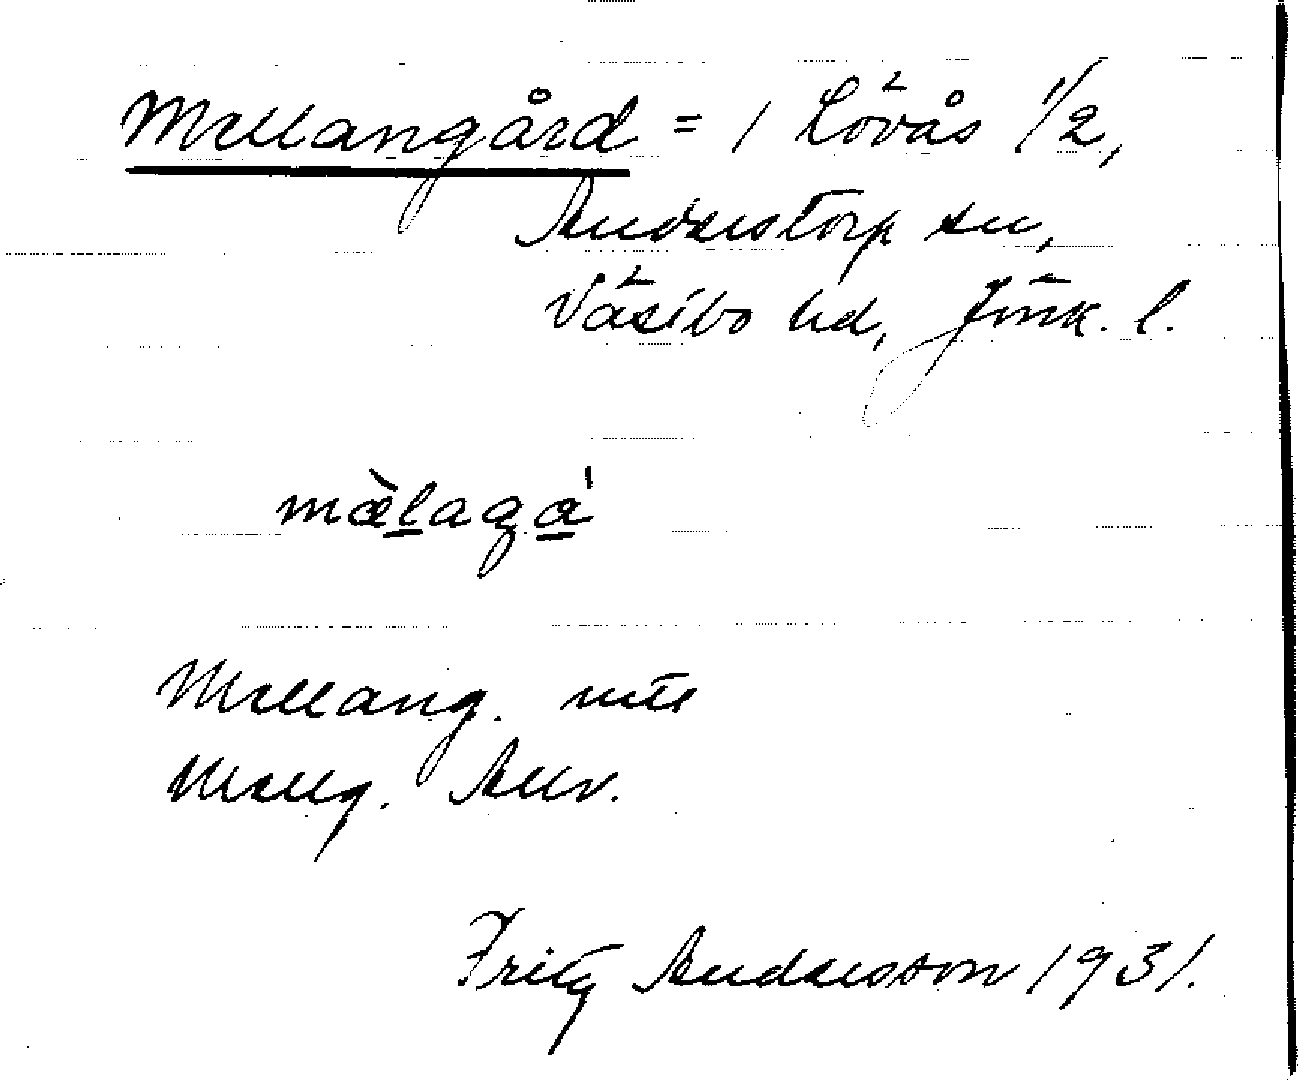 Mellangård = 1 Lövås 1/2,
Anderstorp sn,
Västbo hd, Jönk. l.
mæ̀l̲aga̲̍
Mellang. nts
Mellg. Allv.
Fritz Andersson 1931.